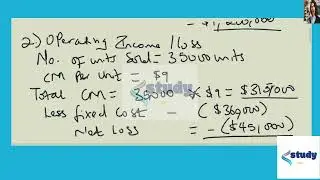 - $1,260,000
2.) Operating Income / loss
No. of units Sold = 35000 units
CM per unit = $9
Total CM = 35000 X $9 = $315,000
Less fixed cost - ($360,000)
Net loss = - ($45,000)
study
study